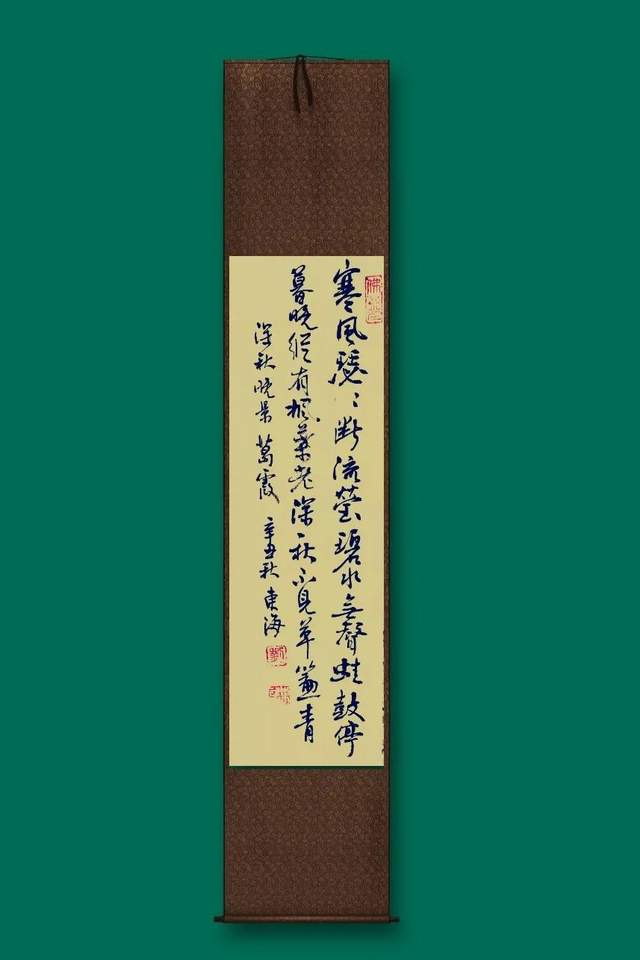 寒風瑟〻断流螢碧水無聲蛙鼓停
暮晚縱有楓葉老深秋不見草簾青
深秋晚景 葛霞 辛丑秋 東海